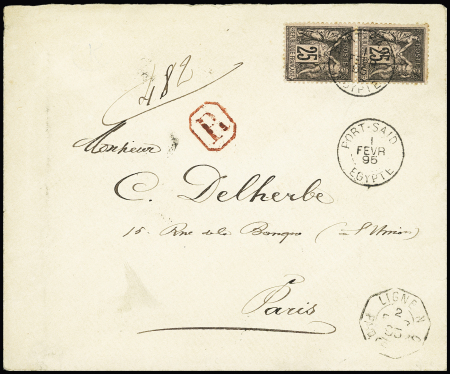 25 25
EGYPTE
482
R
PORT-SAID
1
FEVR
95
EGYPTE
Monsieur
C. Delherbe
15. Rue de la Banque
Paris
LIGNE N
2
95